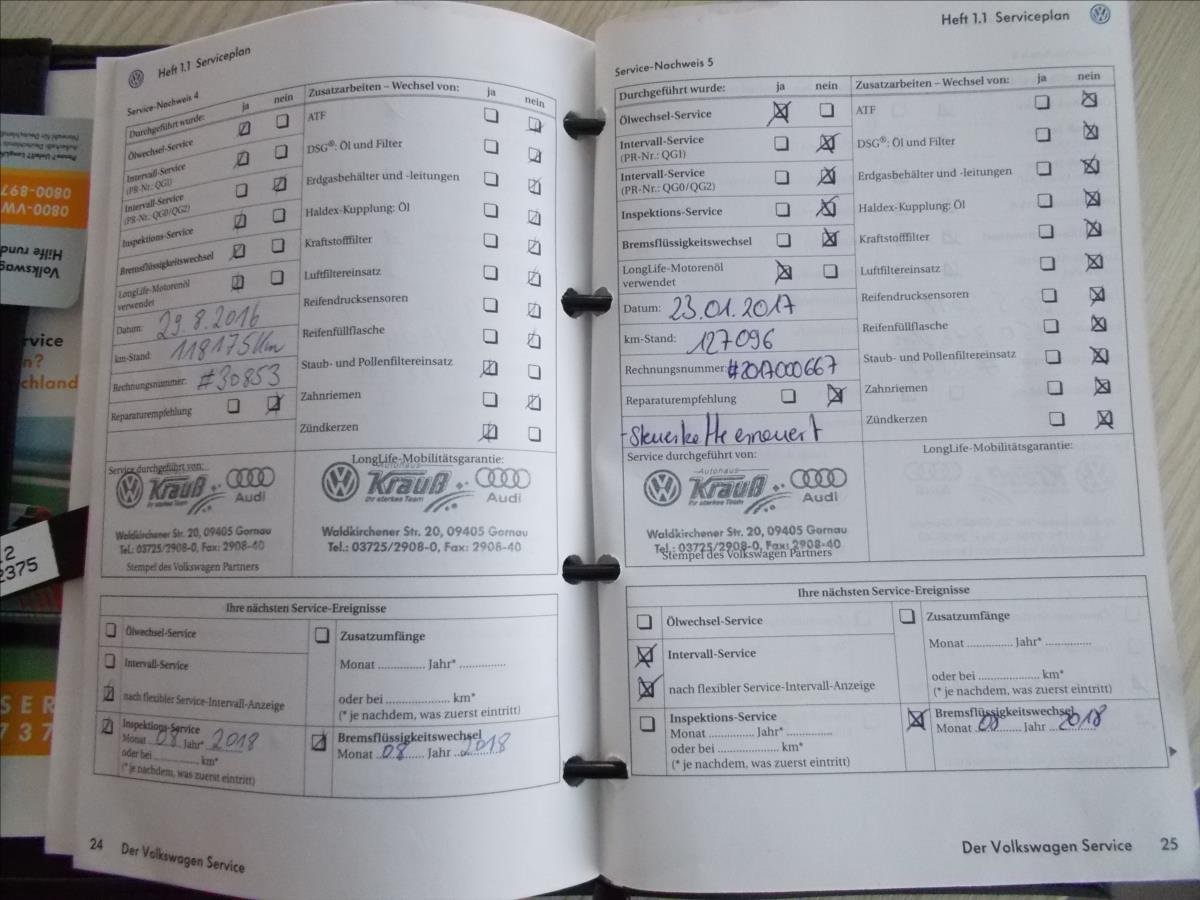 Heft 1.1 Serviceplan
Service-Nachweis 4
Durchgeführt wurde: ja nein
Ölwechsel-Service
Intervall-Service
(PR-Nr.: QG1)
Intervall-Service
(PR-Nr.: QG0/QG2)
Inspektions-Service
Bremsflüssigkeitswechsel
LongLife-Motorenöl
verwendet
Datum: 29.8.2016
km-Stand: 118175 Km
Rechnungsnummer: #30853
Reparaturempfehlung
Zusatzarbeiten – Wechsel von: ja nein
ATF
DSG®: Öl und Filter
Erdgasbehälter und -leitungen
Haldex-Kupplung: Öl
Kraftstofffilter
Luftfiltereinsatz
Reifendrucksensoren
Reifenfüllflasche
Staub- und Pollenfiltereinsatz
Zahnriemen
Zündkerzen
Service durchgeführt von:
Krauß
Ihr starkes Team
Audi
Waldkirchener Str. 20, 09405 Gornau
Tel.: 03725/2908-0, Fax: 2908-40
Stempel des Volkswagen Partners
LongLife-Mobilitätsgarantie:
Autohaus
Krauß
Ihr starkes Team
Audi
Waldkirchener Str. 20, 09405 Gornau
Tel.: 03725/2908-0, Fax: 2908-40
Ihre nächsten Service-Ereignisse
Ölwechsel-Service
Intervall-Service
nach flexibler Service-Intervall-Anzeige
Inspektions-Service
Monat 08 Jahr* 2018
oder bei .................... km*
(* je nachdem, was zuerst eintritt)
Zusatzumfänge
Monat .............. Jahr* ..............
oder bei .................... km*
(* je nachdem, was zuerst eintritt)
Bremsflüssigkeitswechsel
Monat 08 Jahr 2018
24 Der Volkswagen Service
Heft 1.1 Serviceplan
Service-Nachweis 5
Durchgeführt wurde: ja nein
Ölwechsel-Service
Intervall-Service
(PR-Nr.: QG1)
Intervall-Service
(PR-Nr.: QG0/QG2)
Inspektions-Service
Bremsflüssigkeitswechsel
LongLife-Motorenöl
verwendet
Datum: 23.01.2017
km-Stand: 127096
Rechnungsnummer: #20A000667
Reparaturempfehlung
- Steuerkette erneuert
Zusatzarbeiten – Wechsel von: ja nein
ATF
DSG®: Öl und Filter
Erdgasbehälter und -leitungen
Haldex-Kupplung: Öl
Kraftstofffilter
Luftfiltereinsatz
Reifendrucksensoren
Reifenfüllflasche
Staub- und Pollenfiltereinsatz
Zahnriemen
Zündkerzen
Service durchgeführt von:
Autohaus
Krauß
Ihr starkes Team
Audi
Waldkirchener Str. 20, 09405 Gornau
Tel.: 03725/2908-0, Fax: 2908-40
Stempel des Volkswagen Partners
LongLife-Mobilitätsgarantie:
Ihre nächsten Service-Ereignisse
Ölwechsel-Service
Intervall-Service
nach flexibler Service-Intervall-Anzeige
Inspektions-Service
Monat .............. Jahr* ..............
oder bei .................... km*
(* je nachdem, was zuerst eintritt)
Zusatzumfänge
Monat .............. Jahr* ..............
oder bei .................... km*
(* je nachdem, was zuerst eintritt)
Bremsflüssigkeitswechsel
Monat 08 Jahr 2018
Der Volkswagen Service 25
0800-897
0800-VW
Hilfe rund
Volkswag
rvice
n?
chland
2
2375
SER
737